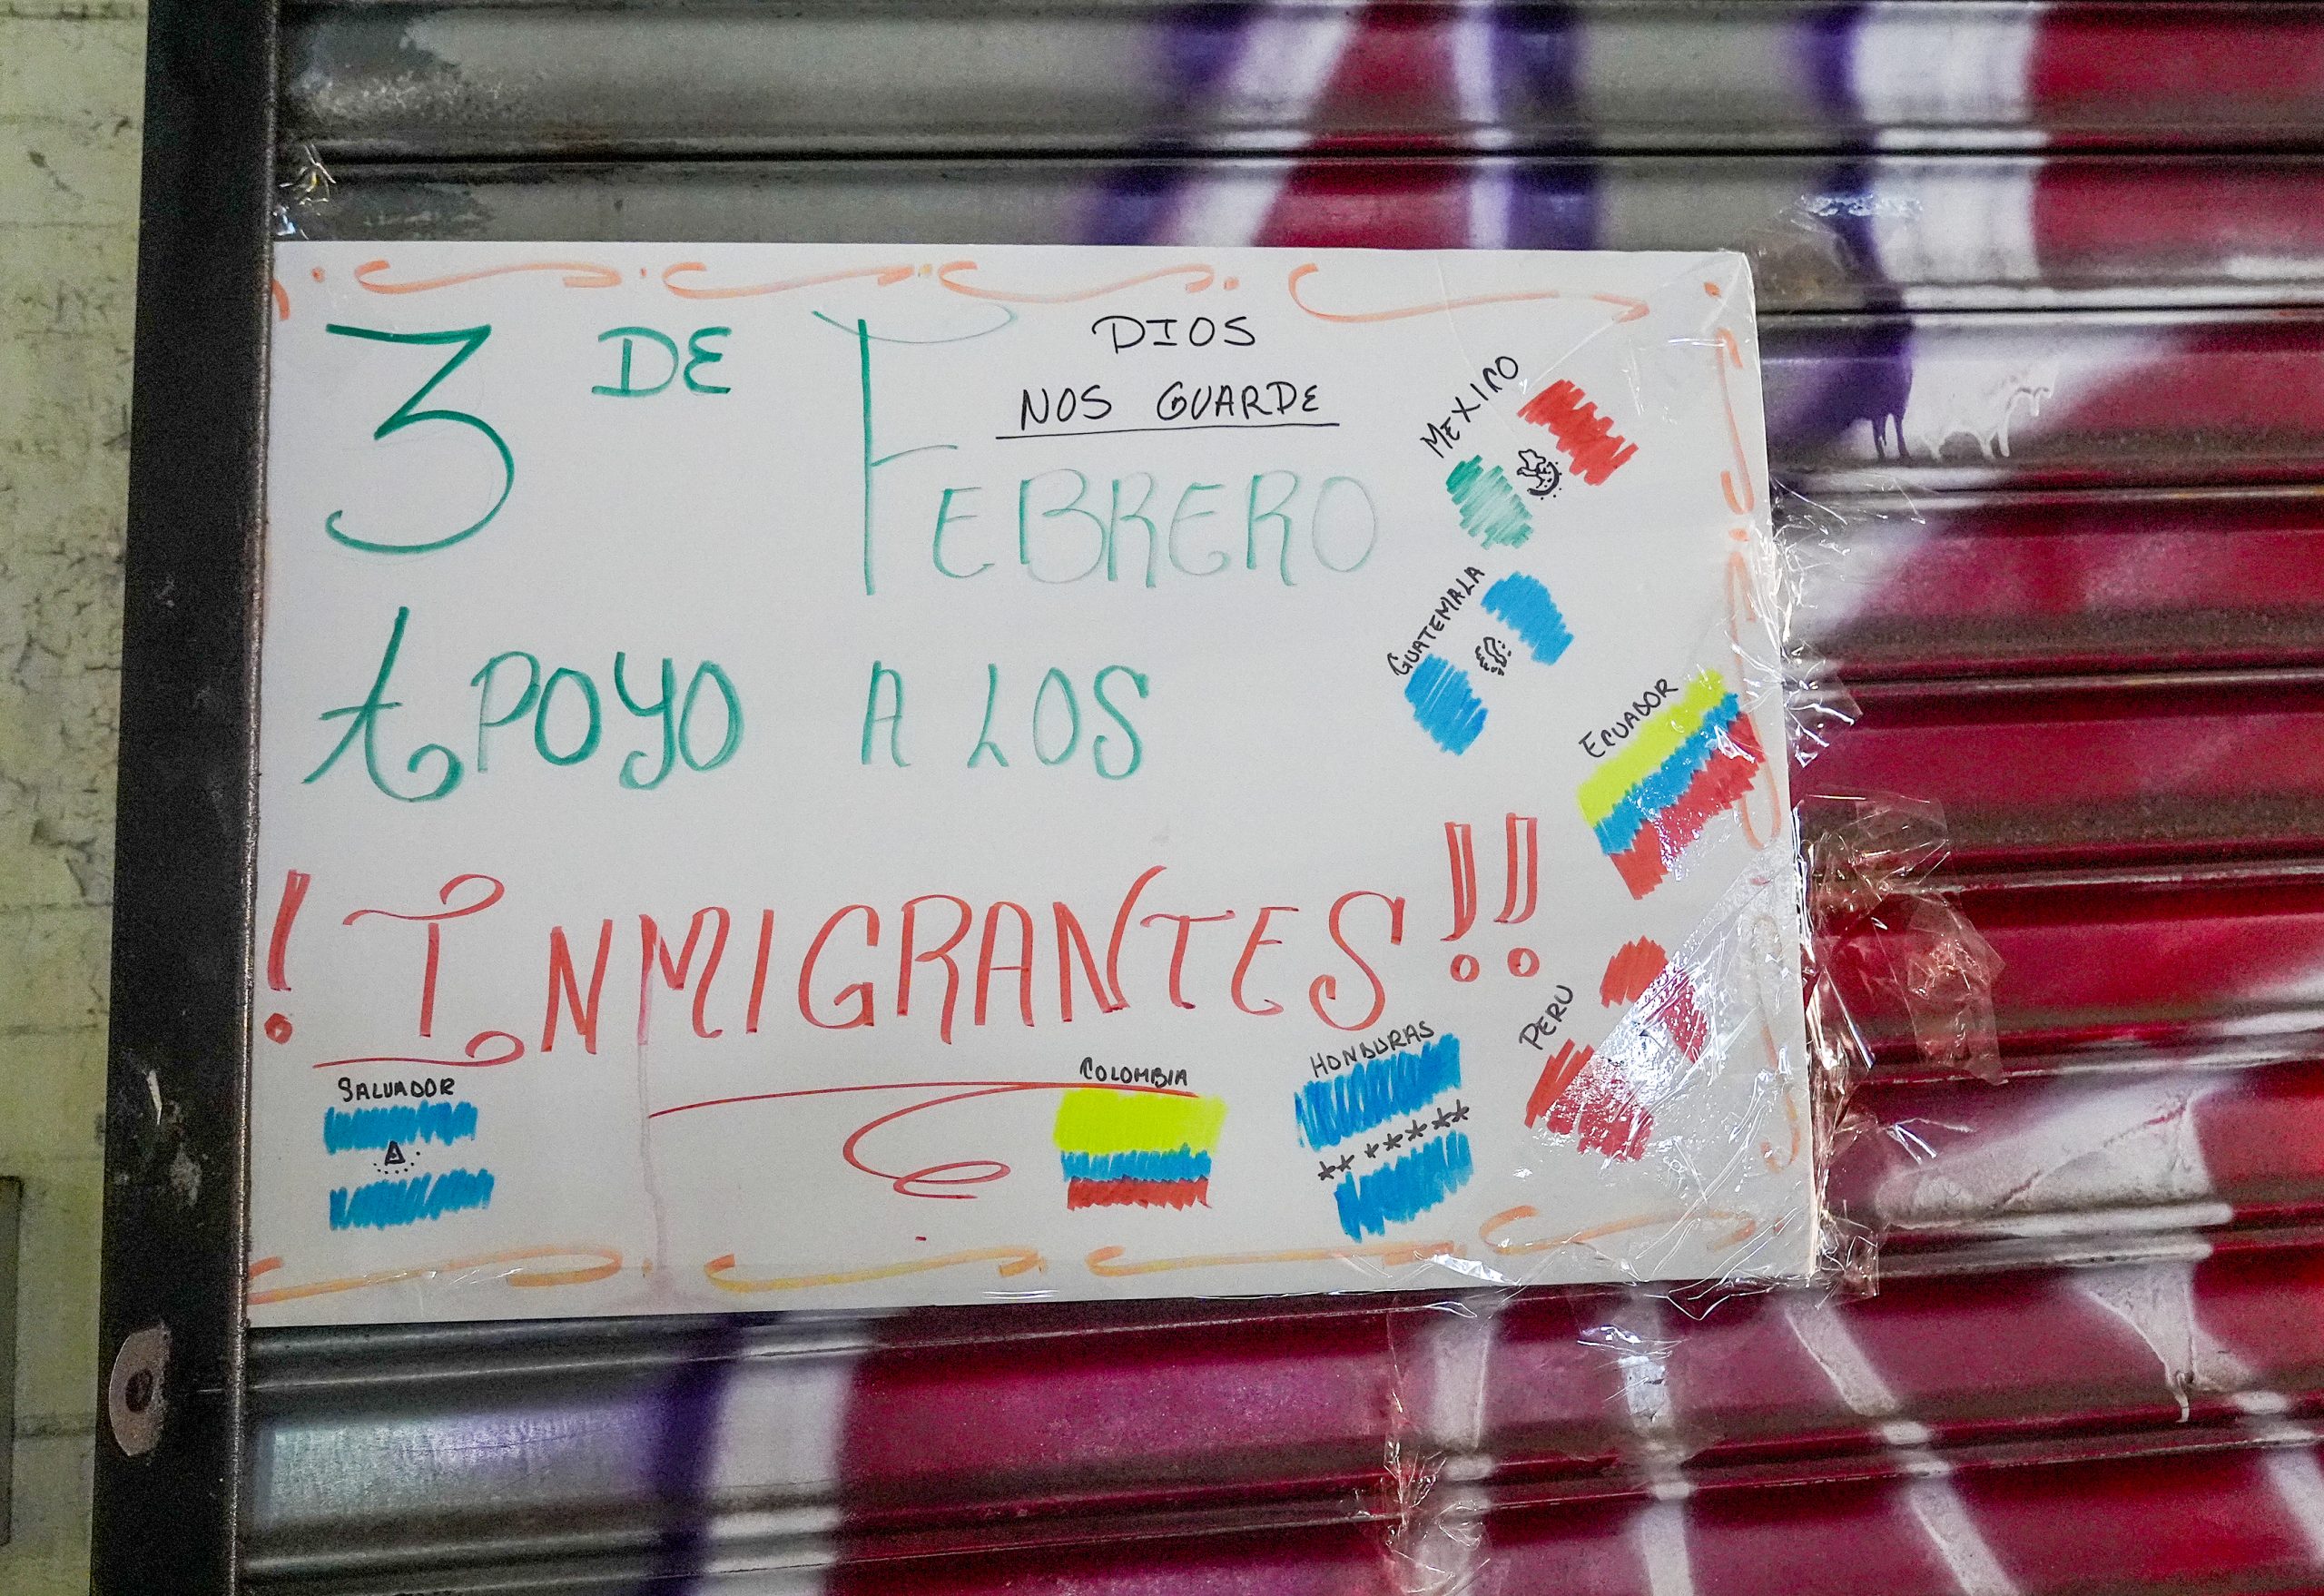 3 DE FEBRERO
DIOS
NOS GUARDE
APOYO A LOS
! INMIGRANTES!!
MEXICO
GUATEMALA
ECUADOR
PERU
HONDURAS
COLOMBIA
SALVADOR